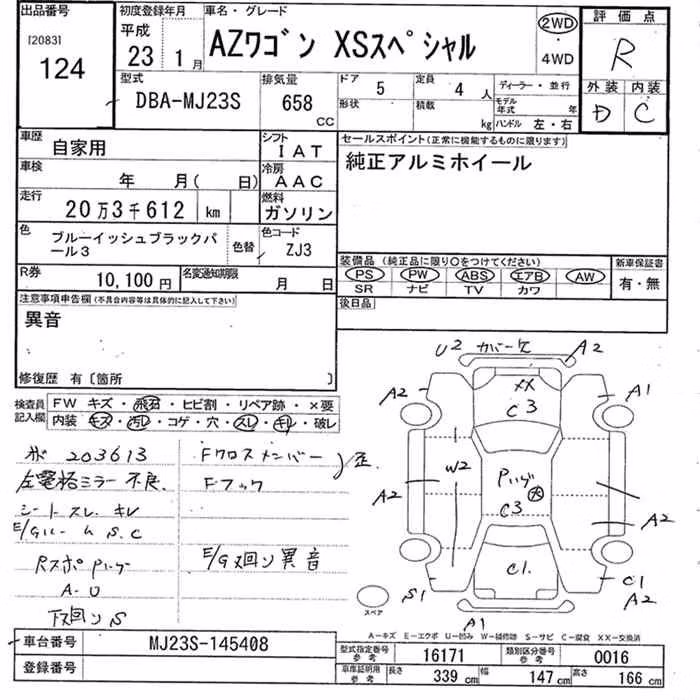 出品番号
[2083]
124
初度登録年月
平成
23 1月
車名・グレード
AZワゴン XSスペシャル
2WD
4WD
評価点
R
外装 内装
D C
型式
DBA-MJ23S
排気量
658
CC
ドア 5
形状
定員 4 人
積載 kg
ディーラー・並行
モデル年式 年
ハンドル 左・右
車歴
自家用
シフト
IAT
車検
年 月( 日)
冷房
AAC
走行
20万3千612 km
燃料
ガソリン
色
ブルーイッシュブラックパール3
色替
色コード
ZJ3
R券
10,100円
名変通知期限
月 日
セールスポイント(正常に機能するものに限ります)
純正アルミホイール
装備品(純正品に限り○をつけてください)
PS PW ABS エアB AW
SR ナビ TV カワ
新車保証書
有・無
後日品
注意事項申告欄(不具合内容等は具体的に記入して下さい)
異音
修復歴 有〔箇所 〕
検査員記入欄
FW キズ・飛石・ヒビ割・リペア跡・×要
内装 キズ・汚レ・コゲ・穴・スレ・キレ・破レ
203613
左電格ミラー不良.
シートスレ.キレ
E/GルームS.C
A-U
下廻りS
Fクロスメンバー
Fフック
E/G廻り異音
U2 カバー欠 A2
A2
XX
C3
A1
W2
C3
A2
A2
C1.
S1
C1
A2
A1
スペア
A-キズ E-エクボ U-凹み W-補修跡 S-サビ C-腐食 XX-交換済
車台番号
MJ23S-145408
登録番号
型式指定番号
参考
16171
類別区分番号
参考
0016
車庫証明
参考
長さ 339 cm
幅 147 cm
高さ 166 cm